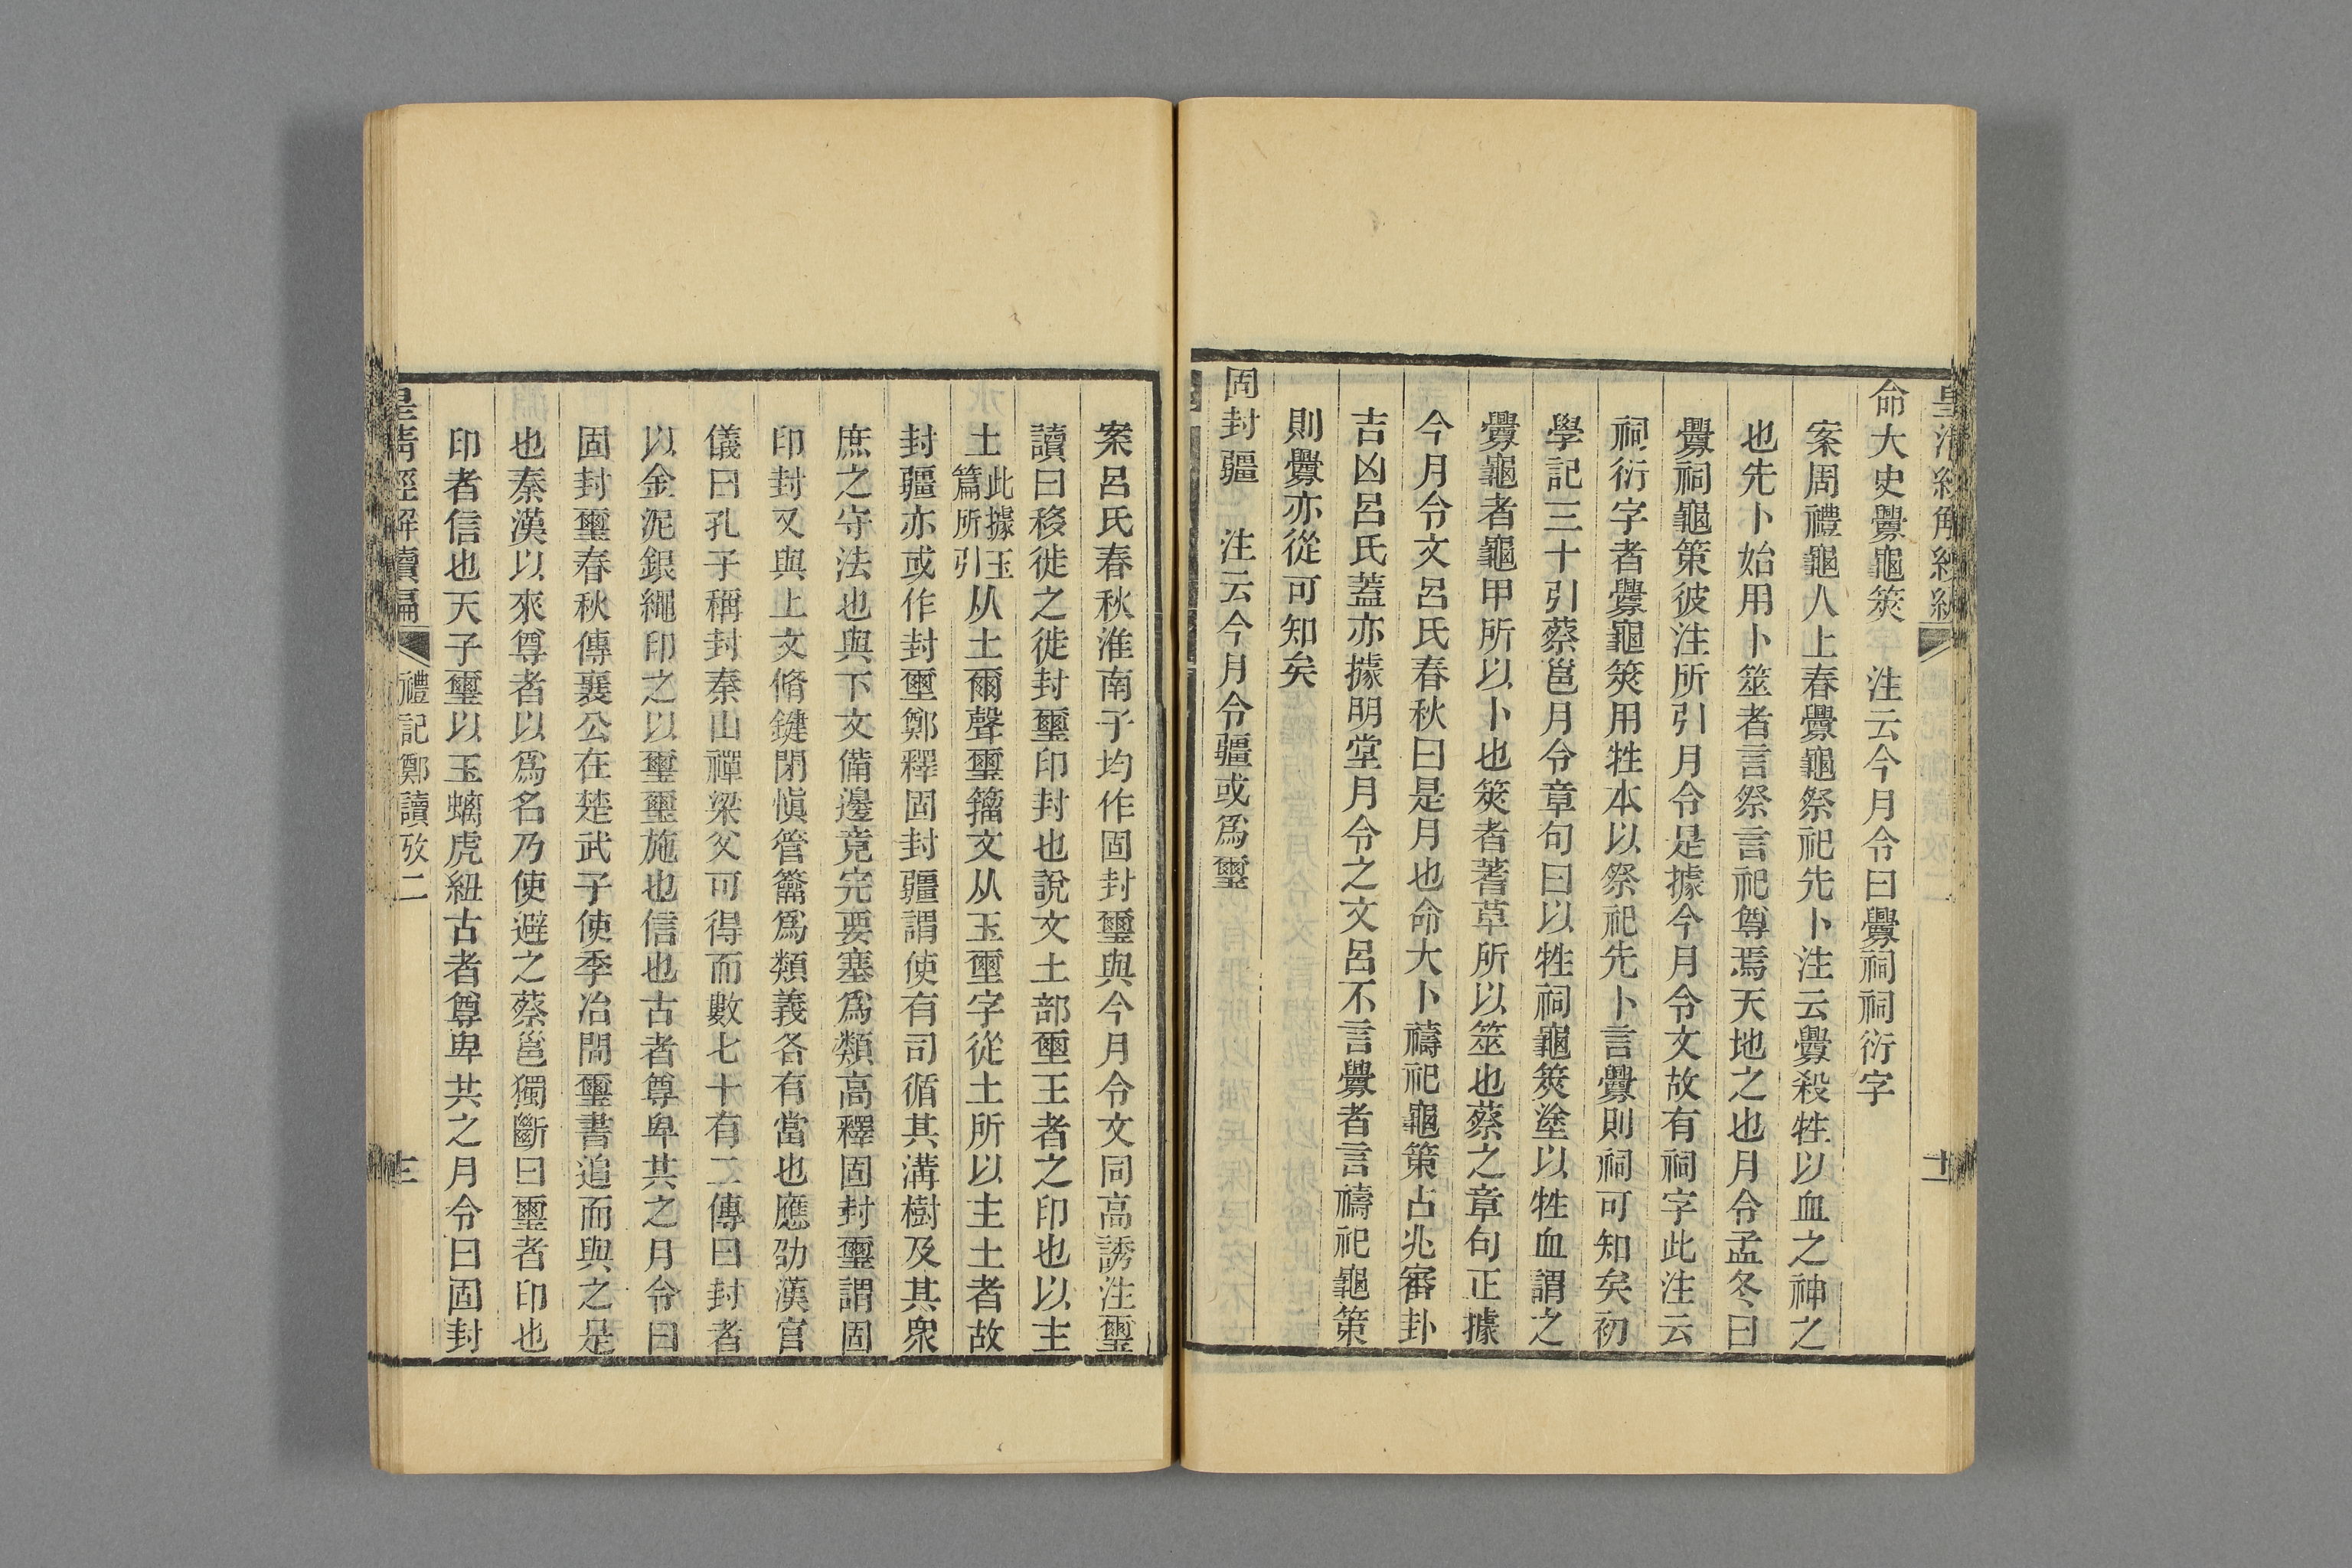 皇清經解續編
十二
命大史釁龜筴　注云今月令曰釁祠祠衍字
案周禮龜人上春釁龜祭祀先卜注云釁殺牲以血之神之
也先卜始用卜筮者言祭言祀尊焉天地之也月令孟冬曰
釁祠龜策彼注所引月令是據今月令文故有祠字此注云
祠衍字者釁龜筴用牲本以祭祀先卜言釁則祠可知矣初
學記三十引蔡邕月令章句曰以牲祠龜筴塗以牲血謂之
釁龜者龜甲所以卜也筴者蓍草所以筮也蔡之章句正據
今月令文呂氏春秋曰是月也命大卜禱祀龜策占兆審卦
吉凶呂氏蓋亦據明堂月令之文呂不言釁者言禱祀龜策
則釁亦從可知矣
固封疆　注云今月令疆或爲璽
案呂氏春秋淮南子均作固封璽與今月令文同高誘注璽
讀曰移徙之徙封璽印封也說文土部壐王者之印也以主
土此據玉篇所引从土爾聲璽籀文从玉壐字從土所以主土者故
封疆亦或作封壐鄭釋固封疆謂使有司循其溝樹及其衆
庶之守法也與下文備邊竟完要塞爲類高釋固封璽謂固
印封又與上文脩鍵閉愼管籥爲類義各有當也應劭漢官
儀曰孔子稱封泰山禪梁父可得而數七十有二傳曰封者
以金泥銀繩印之以璽璽施也信也古者尊卑共之月令曰
固封璽春秋傳襄公在楚武子使季冶問璽書追而與之是
也秦漢以來尊者以爲名乃使避之蔡邕獨斷曰璽者印也
印者信也天子璽以玉螭虎紐古者尊卑共之月令曰固封
皇清經解續編
禮記鄭讀攷二